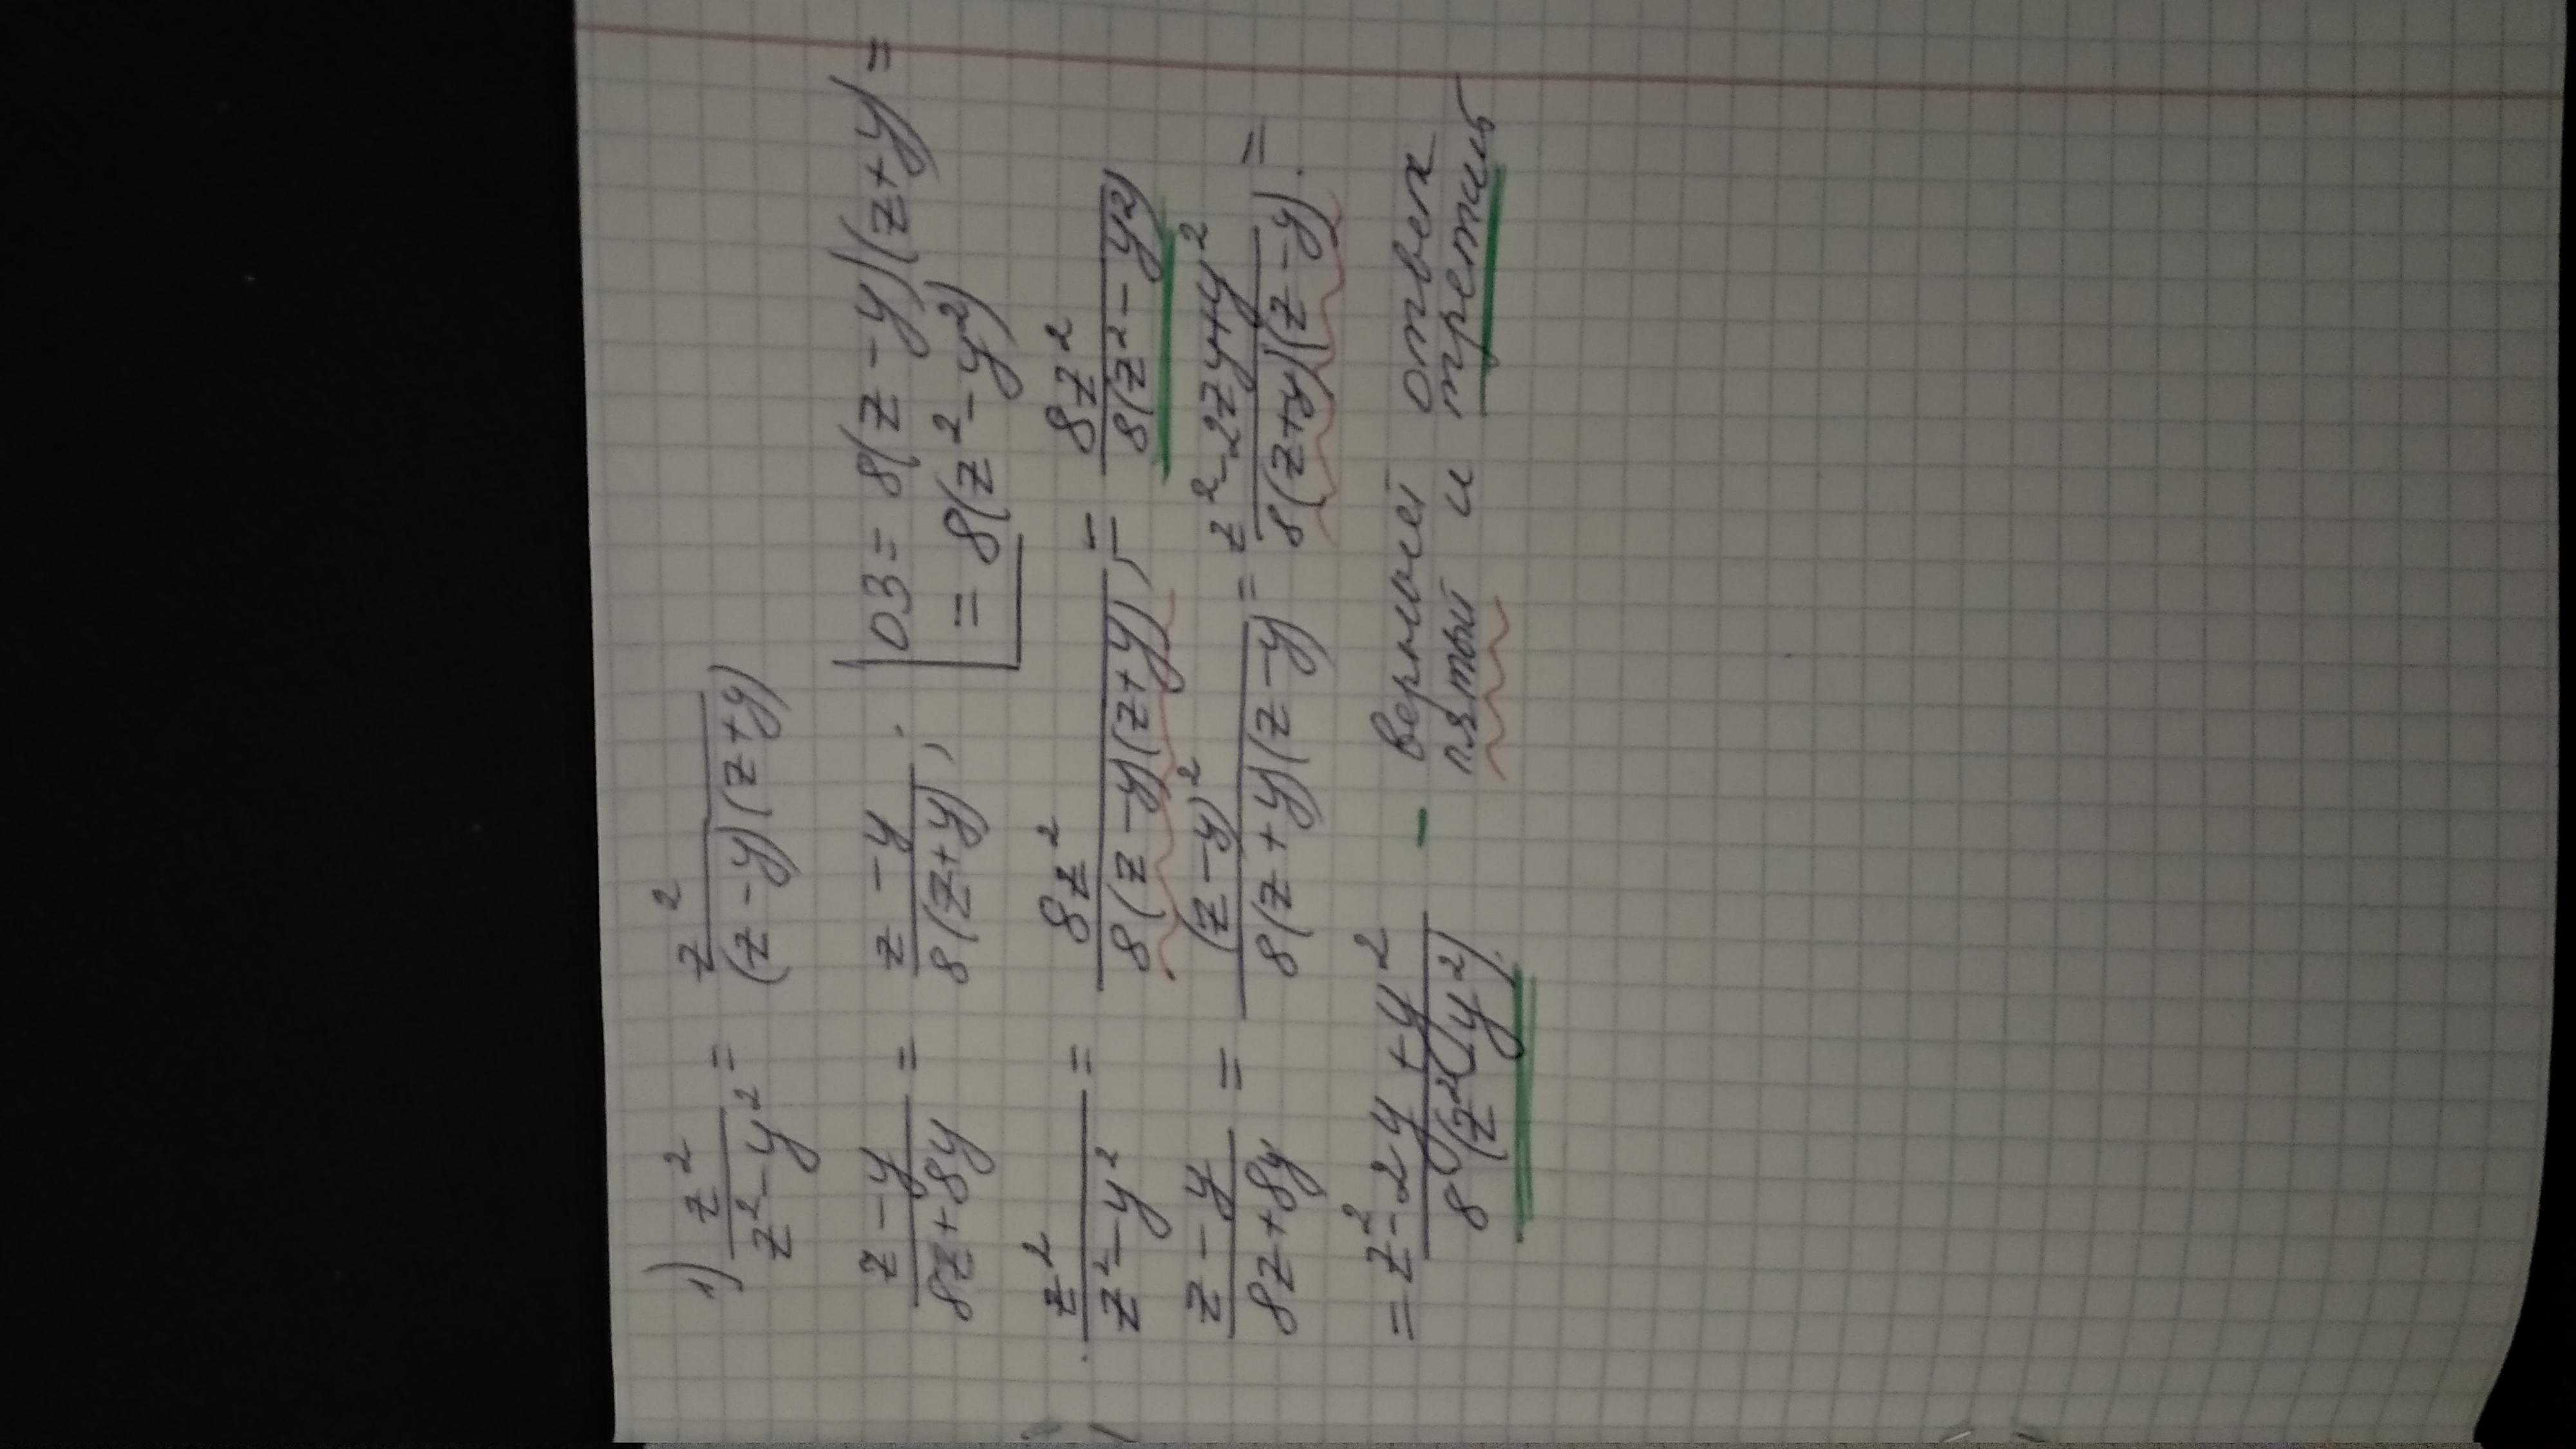 1) z²/(z²-y²) = z²/((z-y)(z+y))
(z-y)/(8z+8y) = (z-y)/(8(z+y)); ОЗ = 8(z-y)(z+y) =
= 8(z²-y²)
z²/(z²-y²) = 8z²/(8(z-y)(z+y)) = 8z²/(8(z²-y²))
(z-y)/(8z+8y) = (z-y)²/(8(z+y)(z-y)) = (z²-2zy+y²)/(8(z+y)(z-y)) =
= (z²-2y+y²)/(8(z²-y²)) - верный ответ
пятый и третий